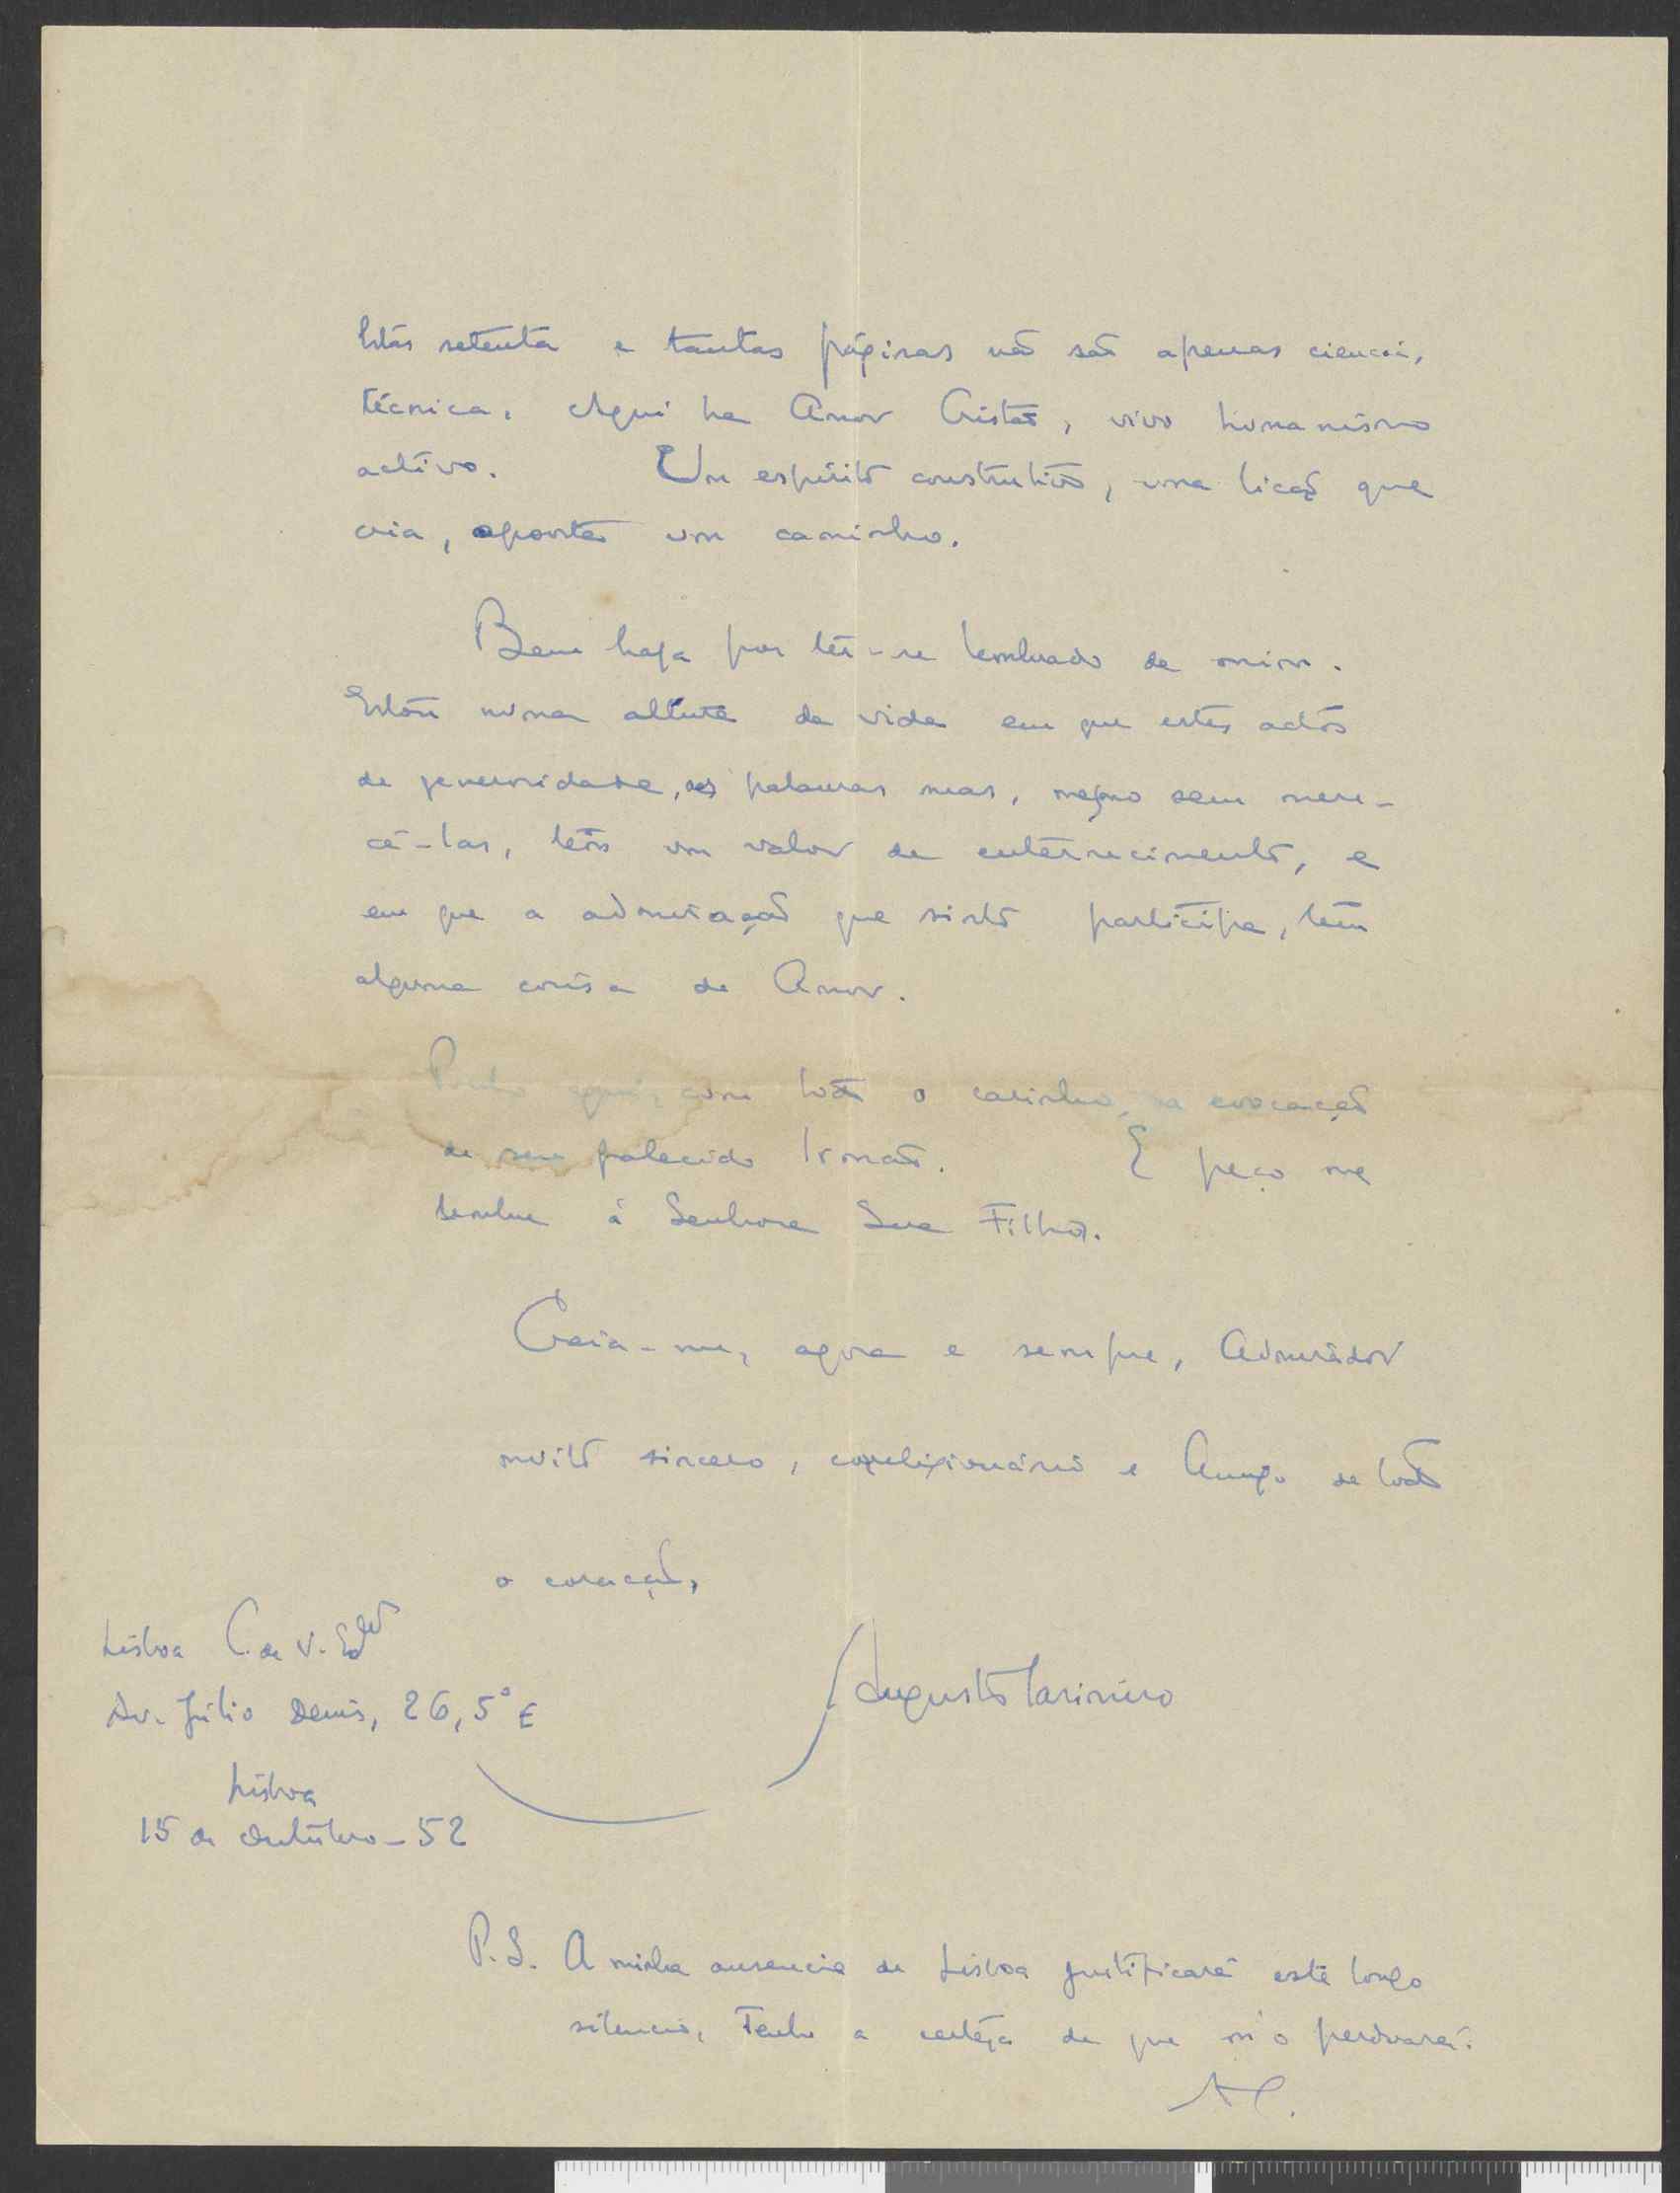 Estas setenta e tantas páginas não são apenas ciencia,
técnica. Aqui ha Amor Cristão, vivo humanismo
activo. Um espirito construtivo, uma lição que
cria, aponta um caminho.
Bem haja por ter-se lembrado de mim.
Estou numa altura da vida em que estes actos
de generosidade, as palavras suas, mesmo sem mere-
cê-las, têm um valor de enternecimento, e
em que a admiração que sinto participa, tem
alguma coisa de Amor.
aqui, com todo o carinho, a evocação
de seu falecido Irmão. E peço me
lembre á Senhora Sua Filha.
Creia-me, agora e sempre, Admirador
muito sincero, correligionário e Amigo de todo
o coração,
Lisboa C. de V. Edor
Augusto Casimiro
Av. Júlio Denis, 26, 5º E
Lisboa
15 de Outubro - 52
P.S. A minha ausencia de Lisboa justificará este longo
silencio, Tenho a certeza de que m'o perdoará.
AC.